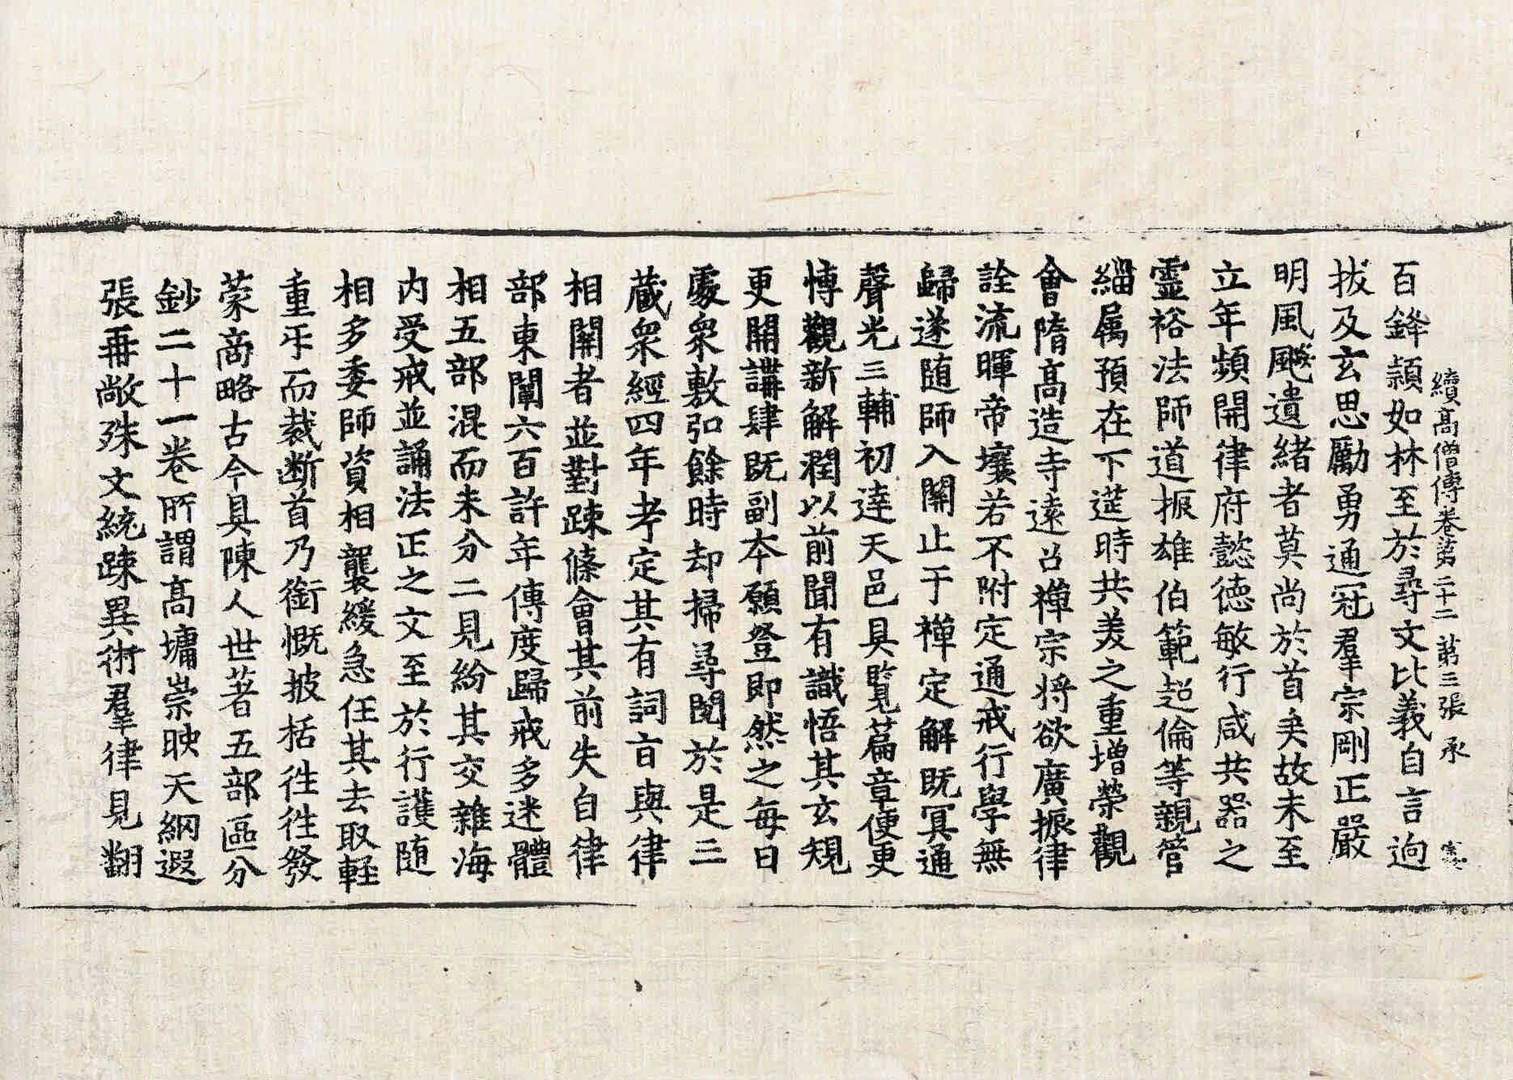 續高僧傳卷第二十二 第三張 承
百鋒穎如林至於尋文比義自言逈
拔及玄思勵勇通冠羣宗剛正嚴
明風颷遺緒者莫尚於首矣故未至
立年頻開律府懿德敏行咸共器之
靈裕法師道振雄伯範超倫等親管
緇属預在下莚時共美之重增榮觀
會隋高造寺遠召禪宗將欲廣振律
詮流暉帝壤若不附定通戒行學無
歸遂随師入關止于禪定解既冥通
聲光三輔初達天邑具覽篇章便更
博觀新解潤以前聞有識悟其玄規
更開講肆既副夲願登即然之每日
處衆敷弘餘時却掃尋閱於是三
蔵衆經四年考定其有詞旨與律
相關者並對踈條會其前失自律
部東闡六百許年傳度歸戒多迷體
相五部混而未分二見紛其交雜海
内受戒並誦法正之文至於行護随
相多委師資相襲緩急任其去取軽
重乎而裁断首乃銜慨披栝徃徃發
蒙商略古今具陳人世著五部區分
鈔二十一卷所謂高墉崇映天網遐
張再敞殊文統踈異術羣律見翻